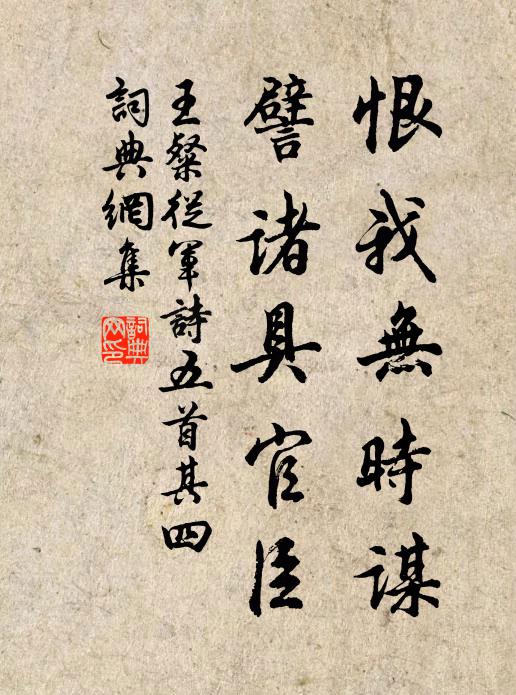 恨我無時謀
譬諸具官臣
王粲從軍詩五首其四
詞典網集
詞典網印